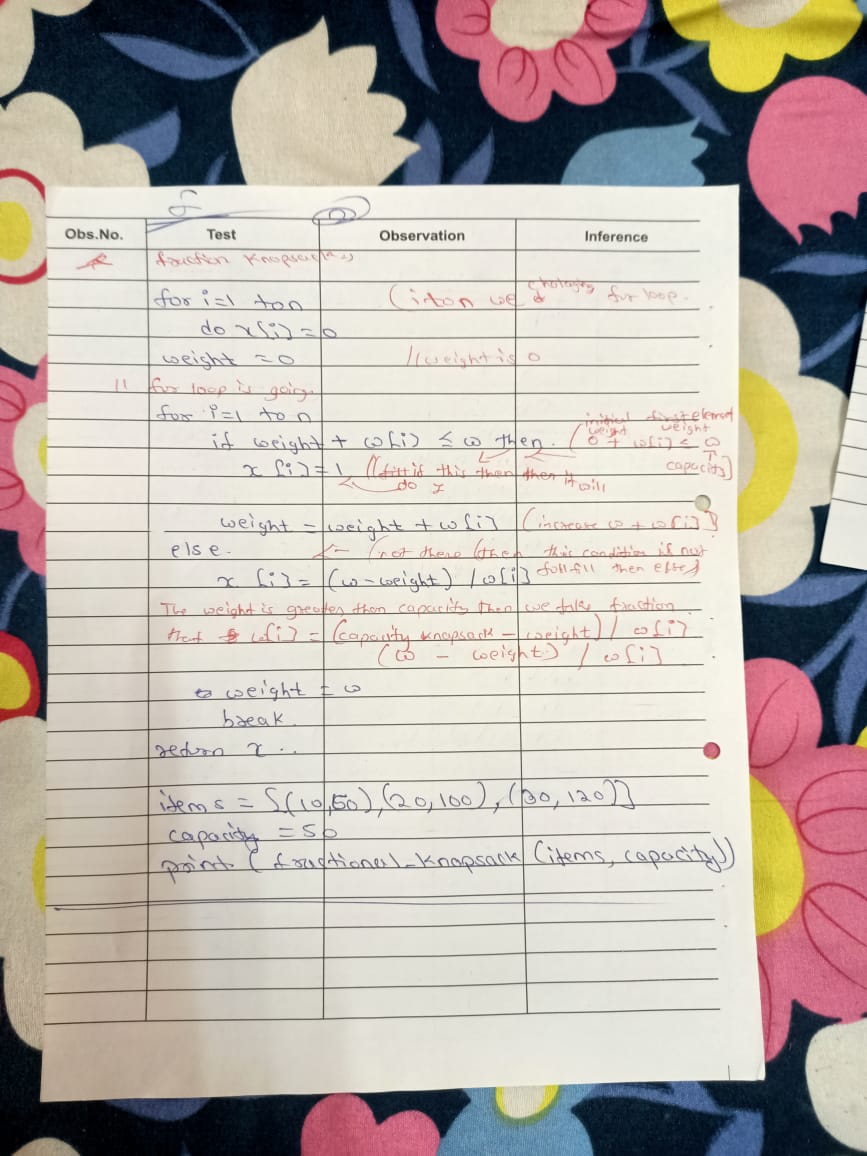 Obs.No. Test Observation Inference
fraction Knapsack
for i=1 to n (i to n we for loop.
do x[i] = 0
weight = 0 // weight is 0
11 for loop is going.
for i=1 to n
initial first element
weight weight
if weight + w[i] ≤ w then. (0 + w[i] ≤ w
capacity]
x[i] = 1 if this then then it will
do 1
weight = weight + w[i] (increase w + w[i]]
else. ← (not there (then this condition is not
x [i] = (w - weight) / w[i] fullfill then else]
The weight is greater than capacity then we take fraction
that w[i] = (capacity knapsack - weight) / w[i]
(w - weight) / w[i]
weight = w
break.
return x ..
items = [(10,50), (20,100), (30,120)]
capacity = 50
print (fractional_Knapsack (items, capacity))